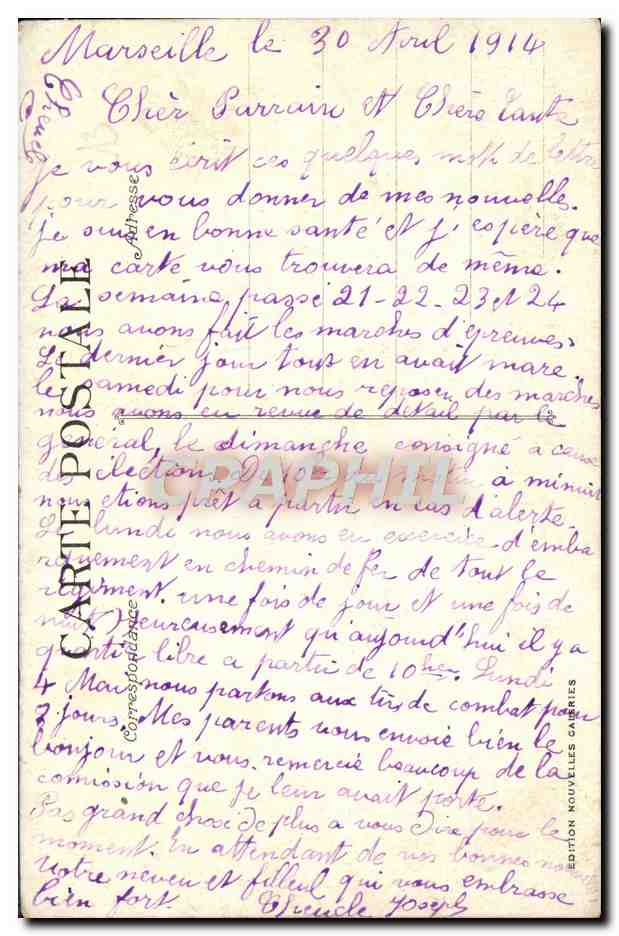 Marseille le 30 Avril 1914
Chèr Parrain et Chère tante
je vous écrit ces quelques mots de lettre
pour vous donner de mes nouvelles.
je suis en bonne santé et j'espère que
ma carte vous trouvera de même.
La semaine passé 21-22-23 et 24
nous avons fait les marches d'épreuves
Le dernièr jour tous en avait mare.
le samedi pour nous reposer des marches
nous avons eu revue de détail par le
général, le dimanche consigné a cause
des élections, de minuit a minuit
nous étions prêt a partir en cas d'alerte.
Le lundi nous avons eu exercice d'emba
rquement en chemin de fer de tout le
régiment. une fois de jour et une fois de
nuit) heureusement qu'aujourd'hui il y a
quartier libre a partir de 10 hes. Lundi
4 Mai nous partons aux tirs de combat pour
7 jours. Mes parents vous envoie bien le
bonjour et vous remercie beaucoup de la
comission que je leur avait porté.
Pas grand chose de plus a vous dire pour le
moment. En attendant de vos bonnes nouvelles
Votre neveu et filleul qui vous embrasse
bien fort.
Joseph
CARTE POSTALE
Correspondance
Adresse
EDITION NOUVELLES GALERIES
CPAPHIL